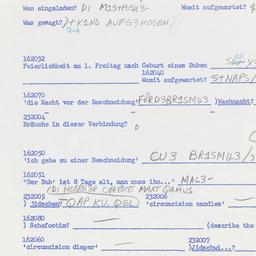 Wen eingeladen? DI M1STPOSX3- Womit aufgewartet?
Was gesagt? )+K1ND AUFG3HOB3N/
162032
Feierlichkeit am 1. Freitag nach Geburt eines Buben
162040
Womit aufgewartet? S+NAPS/
162070
'die Nacht vor der Beschneidung' FÖRD3BR1SM1L43 )Wochnacht?
232004
Bräuche in dieser Verbindung?
162050
'ich gehe zu einer Beschneidung' CU3 BR1SM1L43/
162051
"Der Bub' ist 8 Tage alt, man muss ihn..." MAL3-
232005 232006
) jidschen? QAP KU, QGL) 'circumcision candles'
162080
) Schafootim? (describe the
162060 232007
'circumcision diaper' )Jidschwi...?